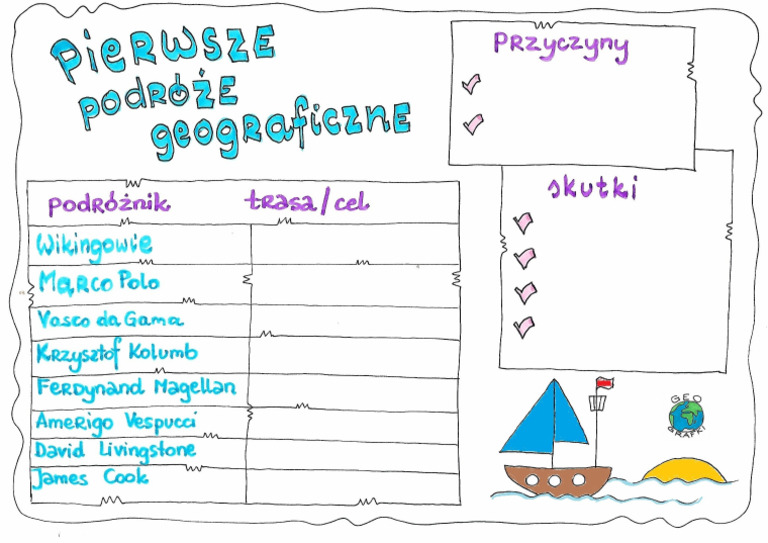 PIERWSZE
PODRÓŻE
geograficzne
Przyczyny
skutki
podróżnik trasa/cel
Wikingowie
Marco Polo
Vasco da Gama
Krzysztof Kolumb
Ferdynand Magellan
Amerigo Vespucci
David Livingstone
James Cook
GEO
GRAFKI